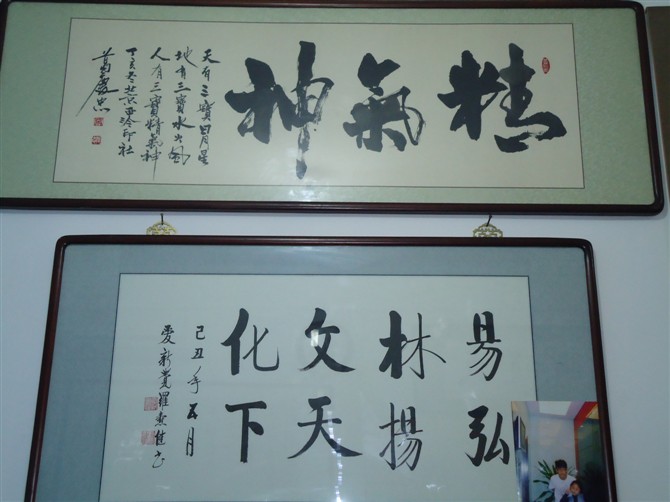 精氣神
天有三寶日月星
地有三寶水火風
人有三寶精氣神
丁亥冬北京西泠印社
易林文化
弘揚天下
己丑年五月
愛新覺羅